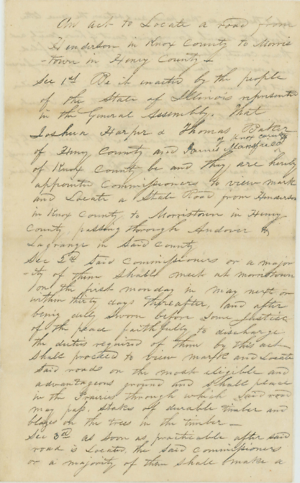 An act to Locate a road from
Henderson in Knox County to Morris
town in Henry County
Sec 1st Be it enacted by the people
of the State of Illinois represented
in the General Assembly, That
Joshua Harper & Thomas Baker
of Henry County and
of Knox County be and they are hereby
appointed Commissioners to view mark
and Locate a State Road from Henderson
in Knox County to Morristown in Henry
County passing through Andover &
Lagrange in Said County
Sec 2d Said Commissioners or a major
ity of them Shall meet at morristown
on the first monday in may next or
within thirty days thereafter, and after
being duly Sworn before Some Justice
of the peace faithfully to discharge
the duties required of them by this act
Shall proceed to view mark and Locate
Said road on the most eligible and
advantageous ground and Shall place
in the Prairies through which Said road
may pass, Stakes of durable timber and
blazes on the trees in the timber
Sec 3d as Soon as practicable after said
road is Located the Said Commissioners
or a majority of them Shall make a